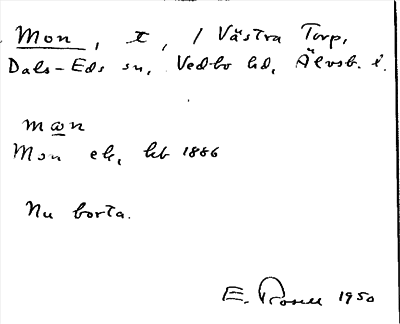 Mon, t, / Västra Torp,
Dals-Eds sn, Vedbo hd, Älvsb. l.
mωn
Mon ek, hb 1886
Nu borta.
E. Rosell 1950